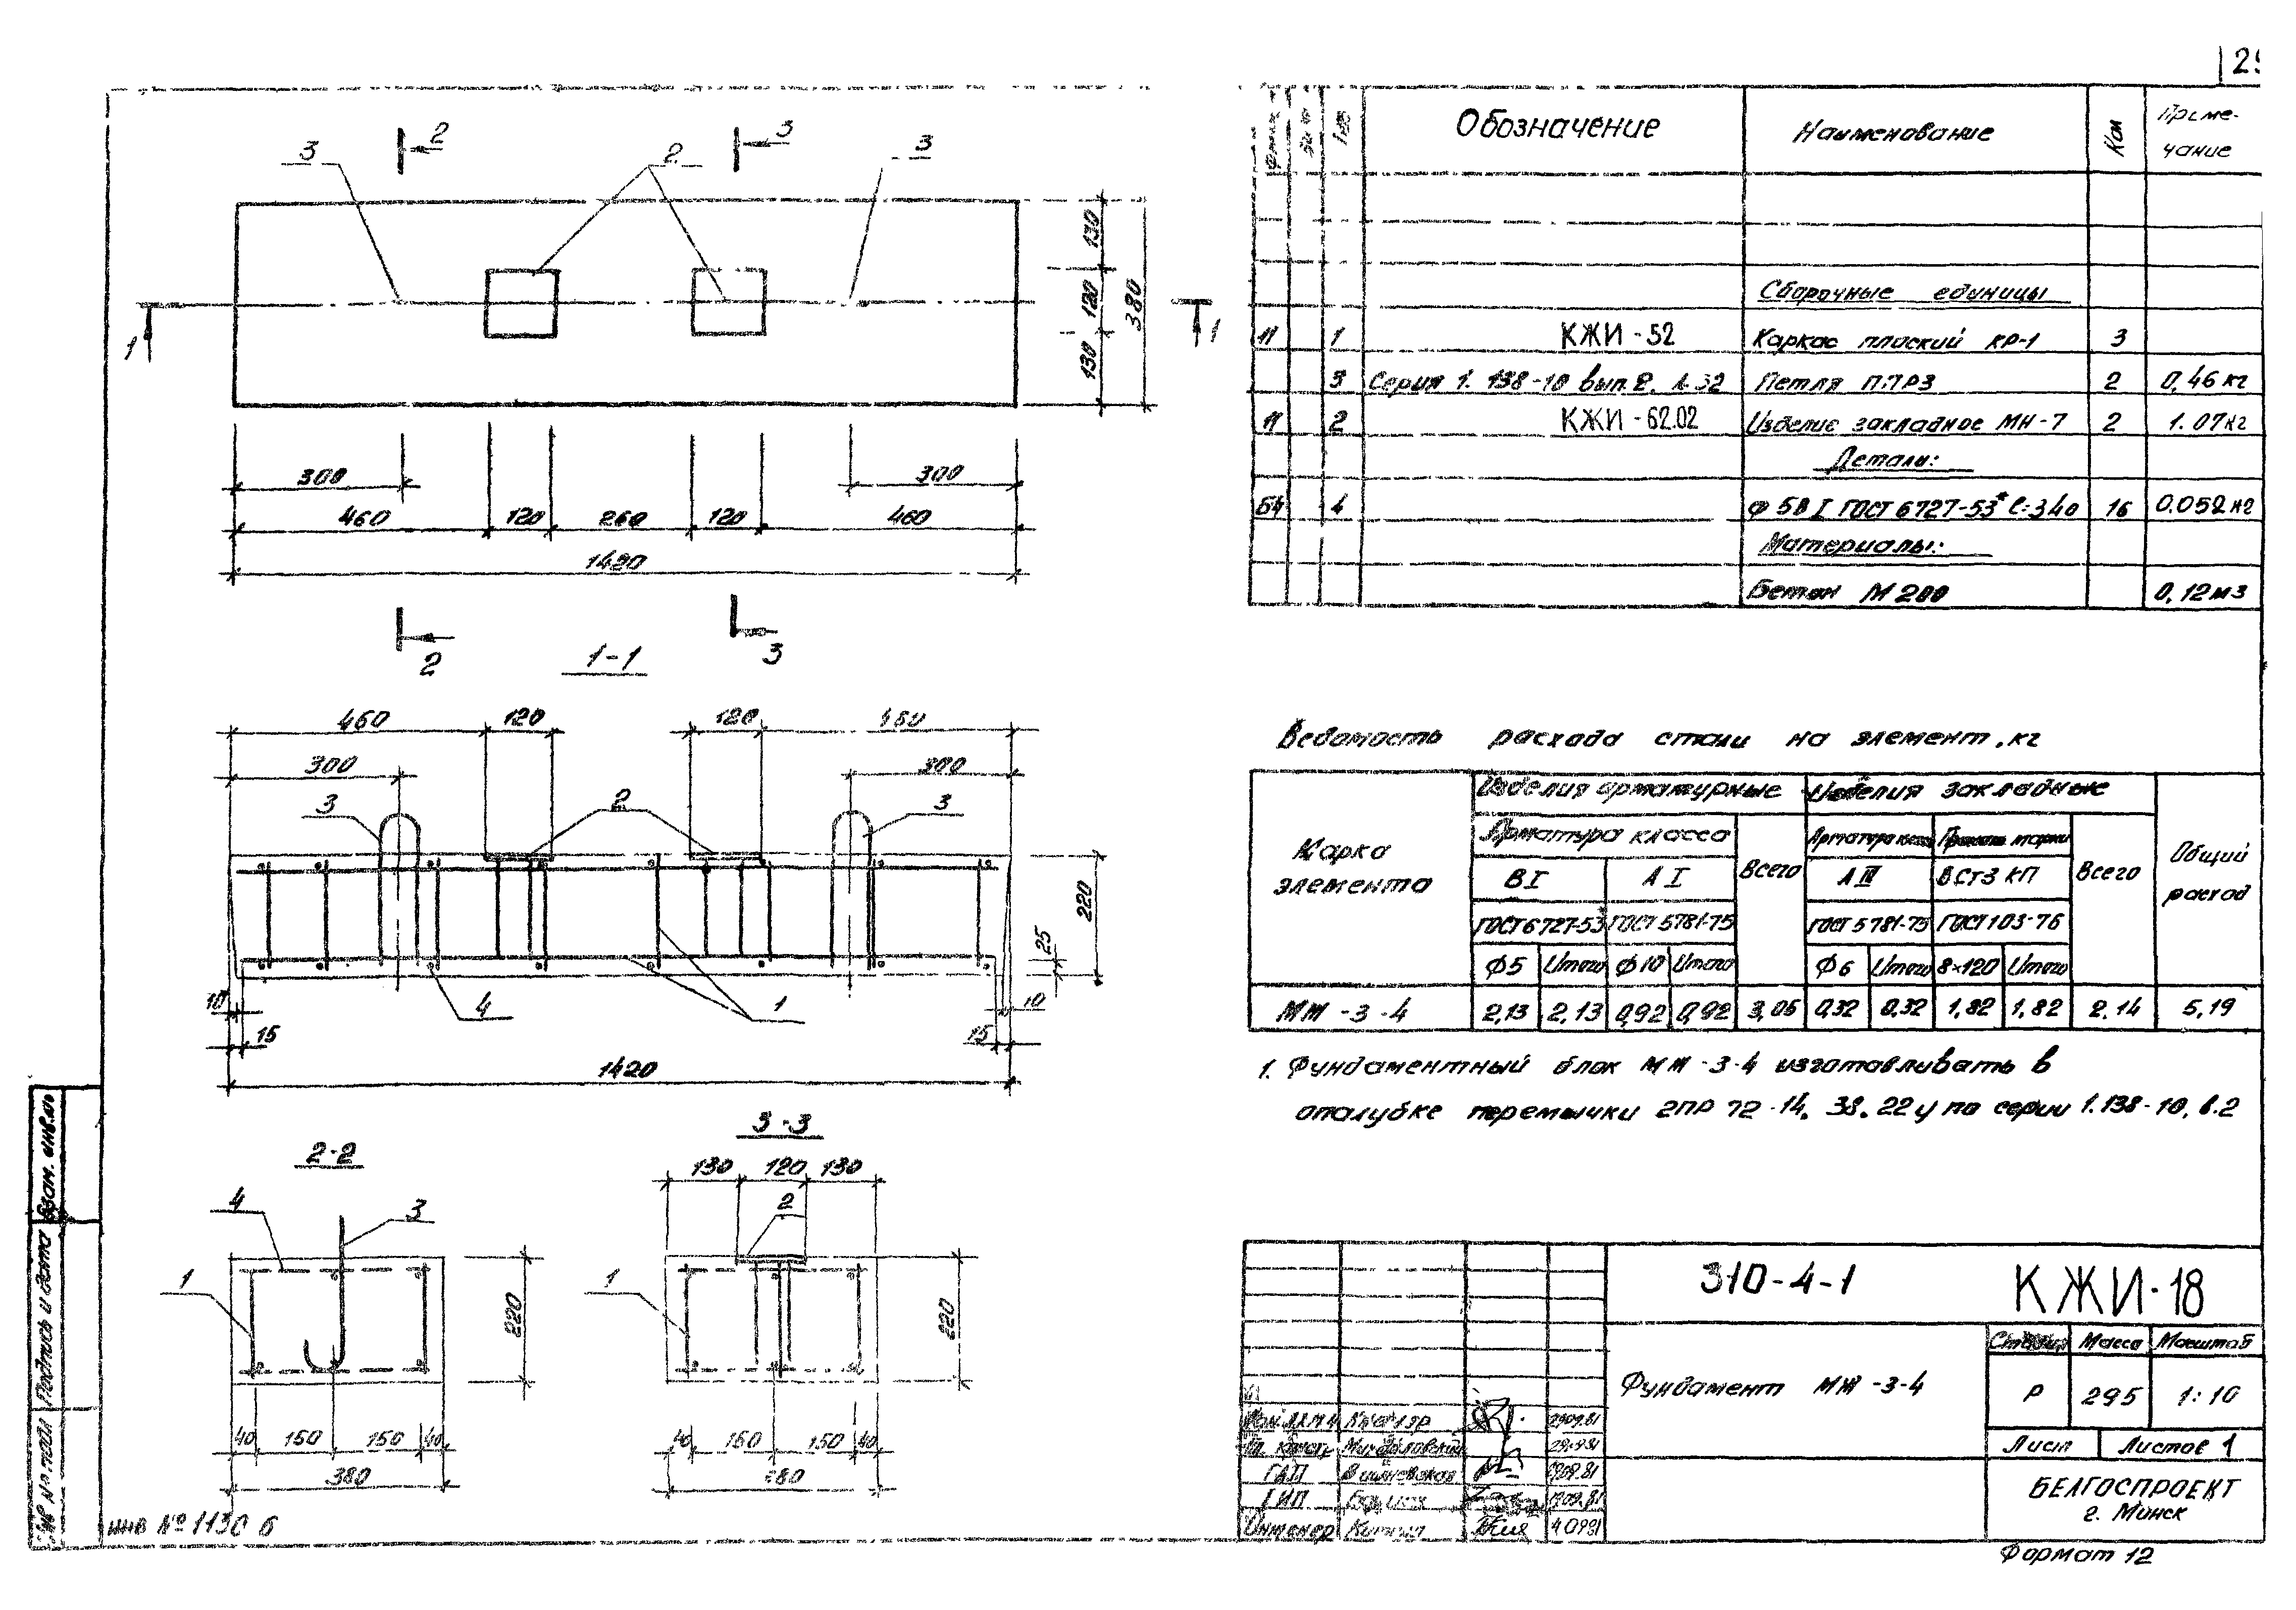 Обозначение
Наименование
Кол
Приме-
чание
Сборочные единицы
11 1 КЖИ-52 Каркас плоский КР-1 3
3 Серия 1.138-10 вып.2. Петля ППР3 2 0,46 кг
11 2 КЖИ-62.02 Изделие закладное МН-7 2 1.07кг
Детали:
БЧ 4 Ф 5В I ГОСТ 6727-53* ℓ=340 16 0.052 кг
Материалы:
Бетон М 200 0,12м3
3 2 2 3 3
1 1
130
120
130
380
300 300
460 120 260 120 460
1420
2 3
1-1
460 120 120 460
300 300
3 2 3
220
25
10 4 1 10
15 15
1420
Ведомость расхода стали на элемент, кг
Марка
элемента
Изделия арматурные
Изделия закладные
Общий
расход
Арматура класса
Всего
Арматура класса
Прокат марки
Всего
В I
А I
А III
ВСт3 КП
ГОСТ 6727-53*
ГОСТ 5781-75
ГОСТ 5781-75
ГОСТ 103-76
Ф5 Итого Ф10 Итого Ф6 Итого 8×120 Итого
МЖ-3-4 2,13 2,13 0,92 0,92 3,05 0,32 0,32 1,82 1,82 2.14 5,19
1. Фундаментный блок МЖ-3-4 изготавливать в
опалубке перемычки 2ПР 72-14. 38. 22у по серии 1.138-10, в.2
2-2
4 3
1
220
40 150 150 40
380
3-3
130 120 130
2
1
220
40 150 150 40
380
310-4-1 КЖИ-18
Фундамент МЖ-3-4
Стадия Масса Масштаб
Р 295 1:10
Лист Листов 1
БЕЛГОСПРОЕКТ
г. Минск
ГАП Вишневская
ГИП
Инженер
Формат 12
Взам. инв.№
Подпись и дата
Инв № подл
инв №